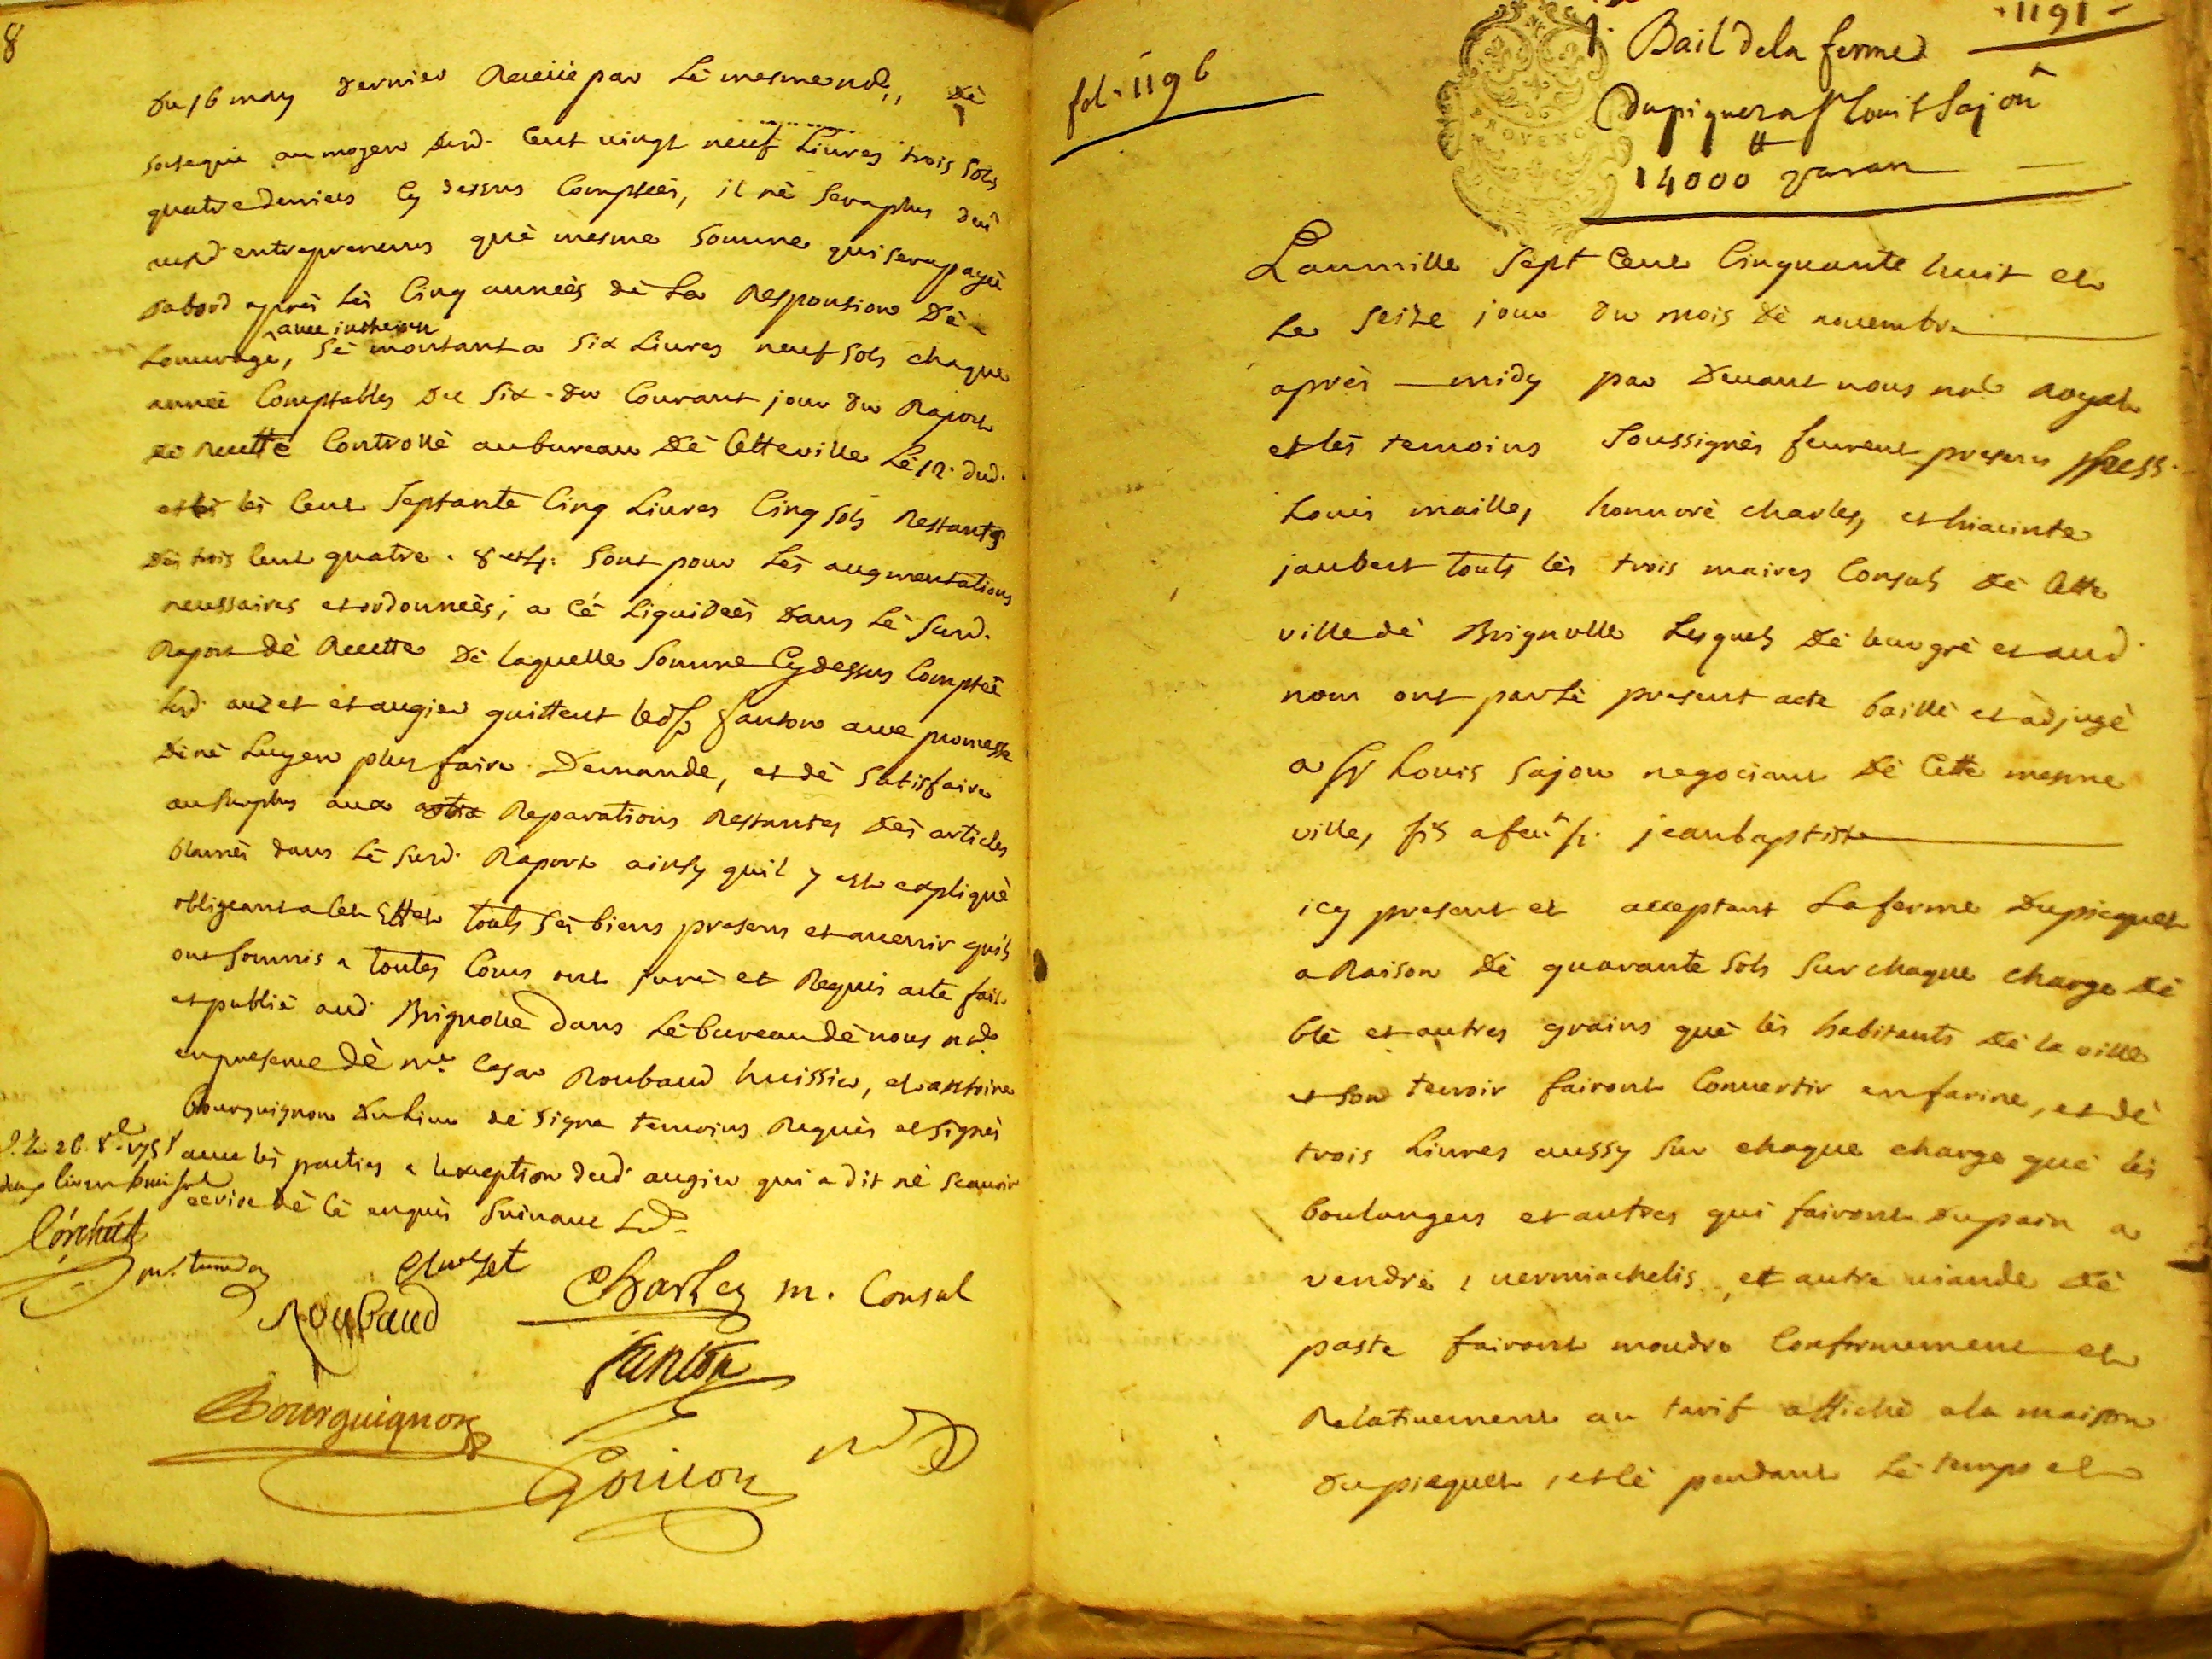 8
du 16 may dernier Receüe par Lé mesme nore,, dè
sorteque au moyen desd. Cent vingt neuf Livres trois sols
quatre deniers Cy dessus Comptées, il né sera plus deü
ausd. entrepreneurs què mesme somme qui sera payeè
dabord après lès Cinq anneès dè La Responsion Dè
avec interieur
Louvragè, sè montant a six Livres neuf sols chaque
anneè Comptables du six du Courant jour du Raport
dè Recette Controllè au bureau dè Cette ville Lè 12. dud.
et lès Cent septante Cinq Livres Cinq sols Restants
des trois Cent quatre . 8 et 4: sont pour Lès augmentations
necessaires et ordonneès, a Cé Liquideès dans Lé susd.
Raport dè Recette dè laquelle somme Cy dessus Compteè
Lesd. auzet et augier quittent led. sr fanton avec promesse
dè nè Luy en plus faire Demande, et dè satisfaire
au surplus aux Reparations Restantes des articles
blamès dans Lè susd. Raport ainsy quil y est expliquè
obligeant a Cet Effet touts sès biens presens et avenir quils
ont soumis a toutes Cours ont jurè et Requis acte fait
et publiè aud. Brignolle dans Lé bureau dè nous nore
en presence dè Me. Cesar Roubaud huissier, et antoine
bourguignon du Lieu dé signe temoins Requis et signès
avec lès parties a lexception dud. augier qui a dit nè scavoir
ecrire dè Cè enquis suivant Lord.
C. Lé 26. 8bre. 1758
Auzet
Charles m. Consul
Roubaud
fanton
Bourguignon
Goujon nore
fol. 1196
1191
PROVENCE
Bail dela ferme
du piquet a sr Louis Sajou
14000 ₶ par an
Lan mille sept Cent Cinquante huit et
Le seize jour du mois dè novembre
après midy par devant nous nore Royal
et lès temoins soussignès feurent presens Mess.
Louis maille, honnorè charles, et hiacinte
jaubert touts lès trois maires Consuls dè Cette
ville dè Brignolle Lesquels dè leur grè et aud.
nom ont par Lè present acte baillè et adjugè
a sr Louis Sajou negociant dè Cette mesme
ville, fils a feu sr. jean baptiste
icy present et acceptant La ferme du piequet
a Raison dè quarante sols sur chaque charge dè
blè et autres grains què lès habitants dè la ville
et son terroir fairont Convertir en farine, et dè
trois Livres aussy sur chaque charge què lès
boulangers et autres qui fairont du pain a
vendrè, vermiachelis, et autre viande dè
paste fairont moudre Conformement et
Relativement au tarif affichè a la maison
du piequet, et Cè pendant Lè temps et